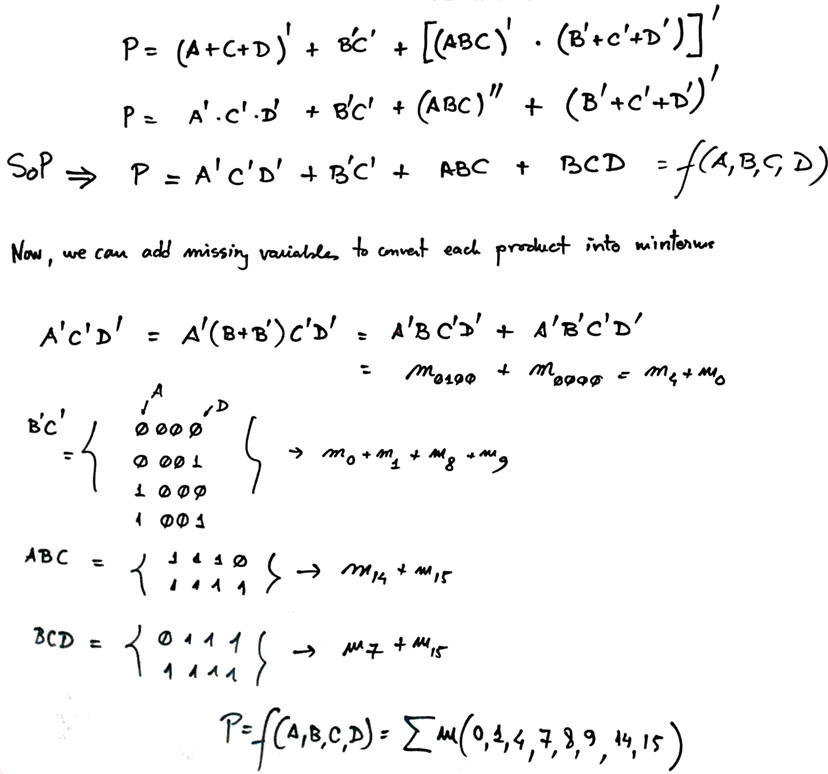 P = (A+C+D)' + B'C' + [(ABC)' · (B'+C'+D')]'
P = A'·C'·D' + B'C' + (ABC)'' + (B'+C'+D')'
SoP ⇒ P = A'C'D' + B'C' + ABC + BCD = f(A,B,C,D)
Now, we can add missing variables to convert each product into minterms
A'C'D' = A'(B+B')C'D' = A'BC'D' + A'B'C'D'
= m0100 + m0000 = m4+m0
A D
B'C' = { 0000
0001
1000
1001 } → m0+m1+m8+m9
ABC = { 1110
1111 } → m14+m15
BCD = { 0111
1111 } → m7+m15
P=f(A,B,C,D) = Σm(0,1,4,7,8,9,14,15)